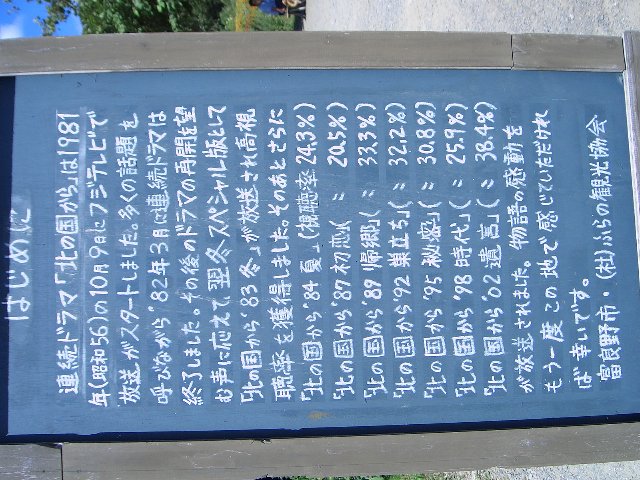 はじめに
連続ドラマ「北の国から」は1981
年(昭和56)の10月9日にフジテレビで
放送がスタートしました。多くの話題を
呼びながら'82年3月に連続ドラマは
終了しました。その後のドラマの再開を望
む声に応えて翌冬スペシャル版として
「北の国から'83冬」が放送され高視
聴率を獲得しました。そのあとさらに
「北の国から'84夏」(視聴率24.3%)
「北の国から'87初恋」(〃20.5%)
「北の国から'89帰郷」(〃33.3%)
「北の国から'92巣立ち」(〃32.2%)
「北の国から'95秘密」(〃30.8%)
「北の国から'98時代」(〃25.9%)
「北の国から'02遺言」(〃38.4%)
が放送されました。物語の感動を
もう一度この地で感じていただけれ
ば幸いです。
富良野市・(社)ふらの観光協会